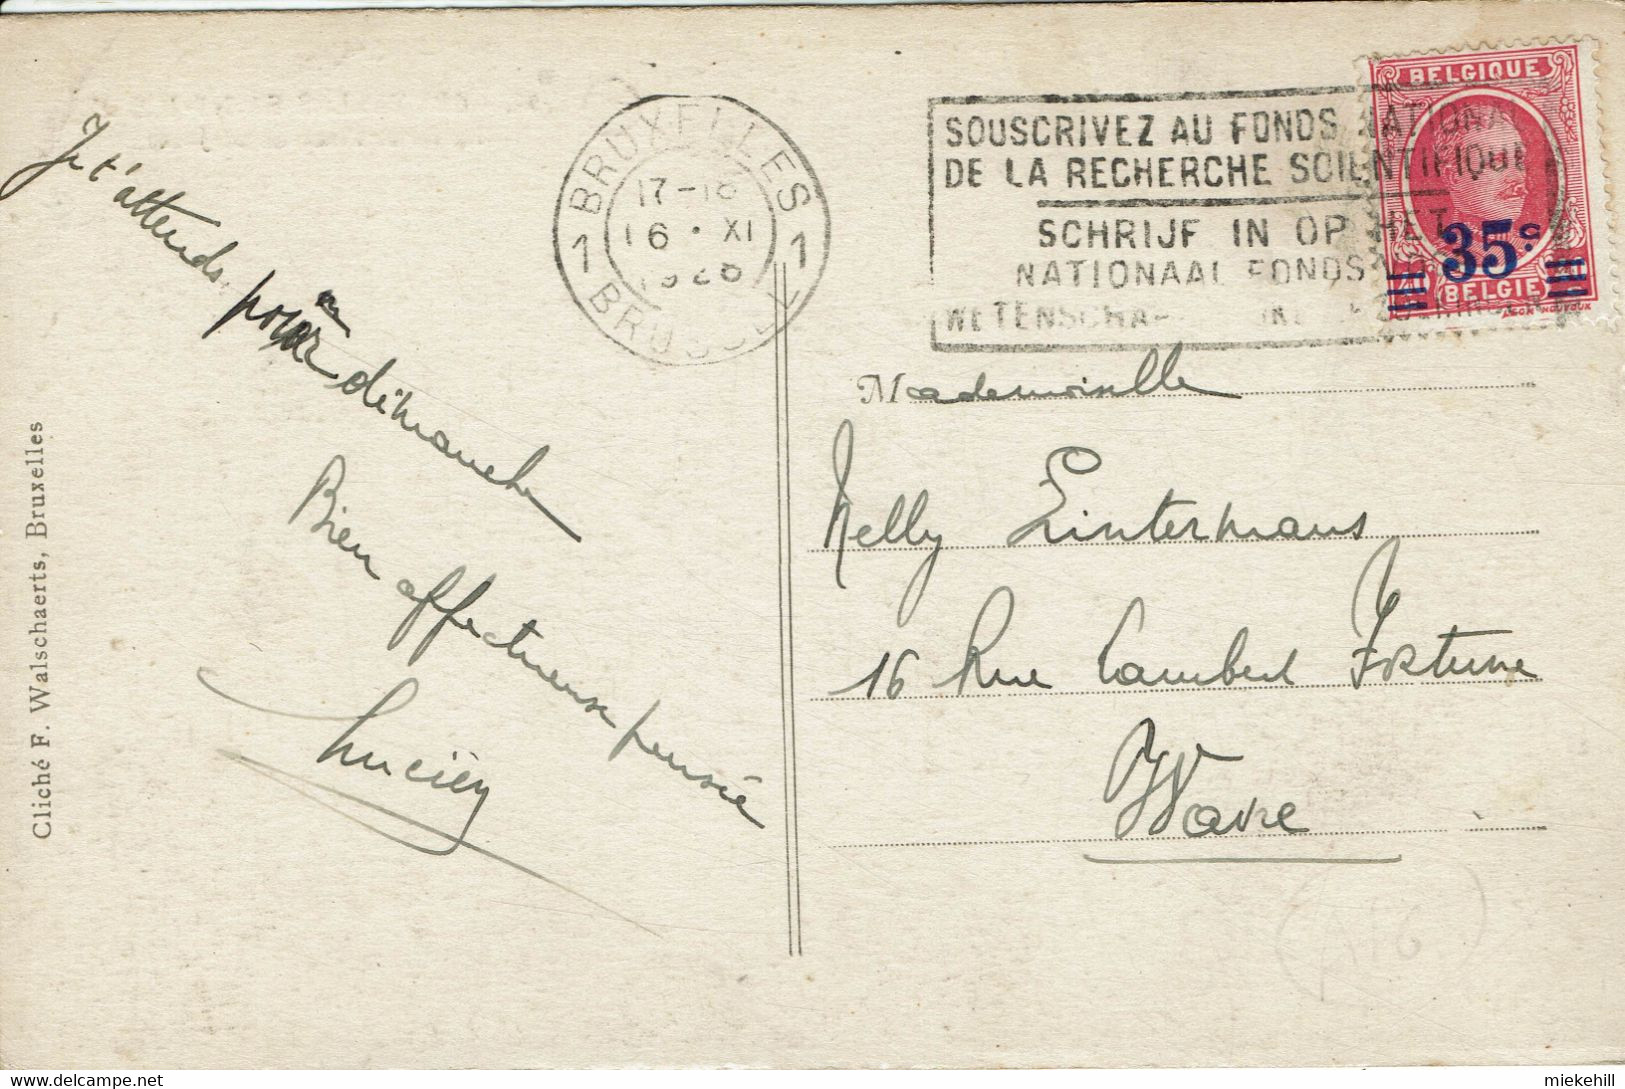 BELGIQUE
SOUSCRIVEZ AU FONDS NATIONAL
DE LA RECHERCHE SCIENTIFIQUE
SCHRIJF IN OP HET
NATIONAAL FONDS
35 c
BELGIE
BRUXELLES
17-18
16 · XI
1928
1 1
BRUSSEL
Je t'attends
pour dimanche
Bien affectueuse pensée
Lucien
Cliché F. Walschaerts, Bruxelles
Mademoiselle
Nelly Lintermans
16 Rue Lambert Fortune
Wavre
miekehill